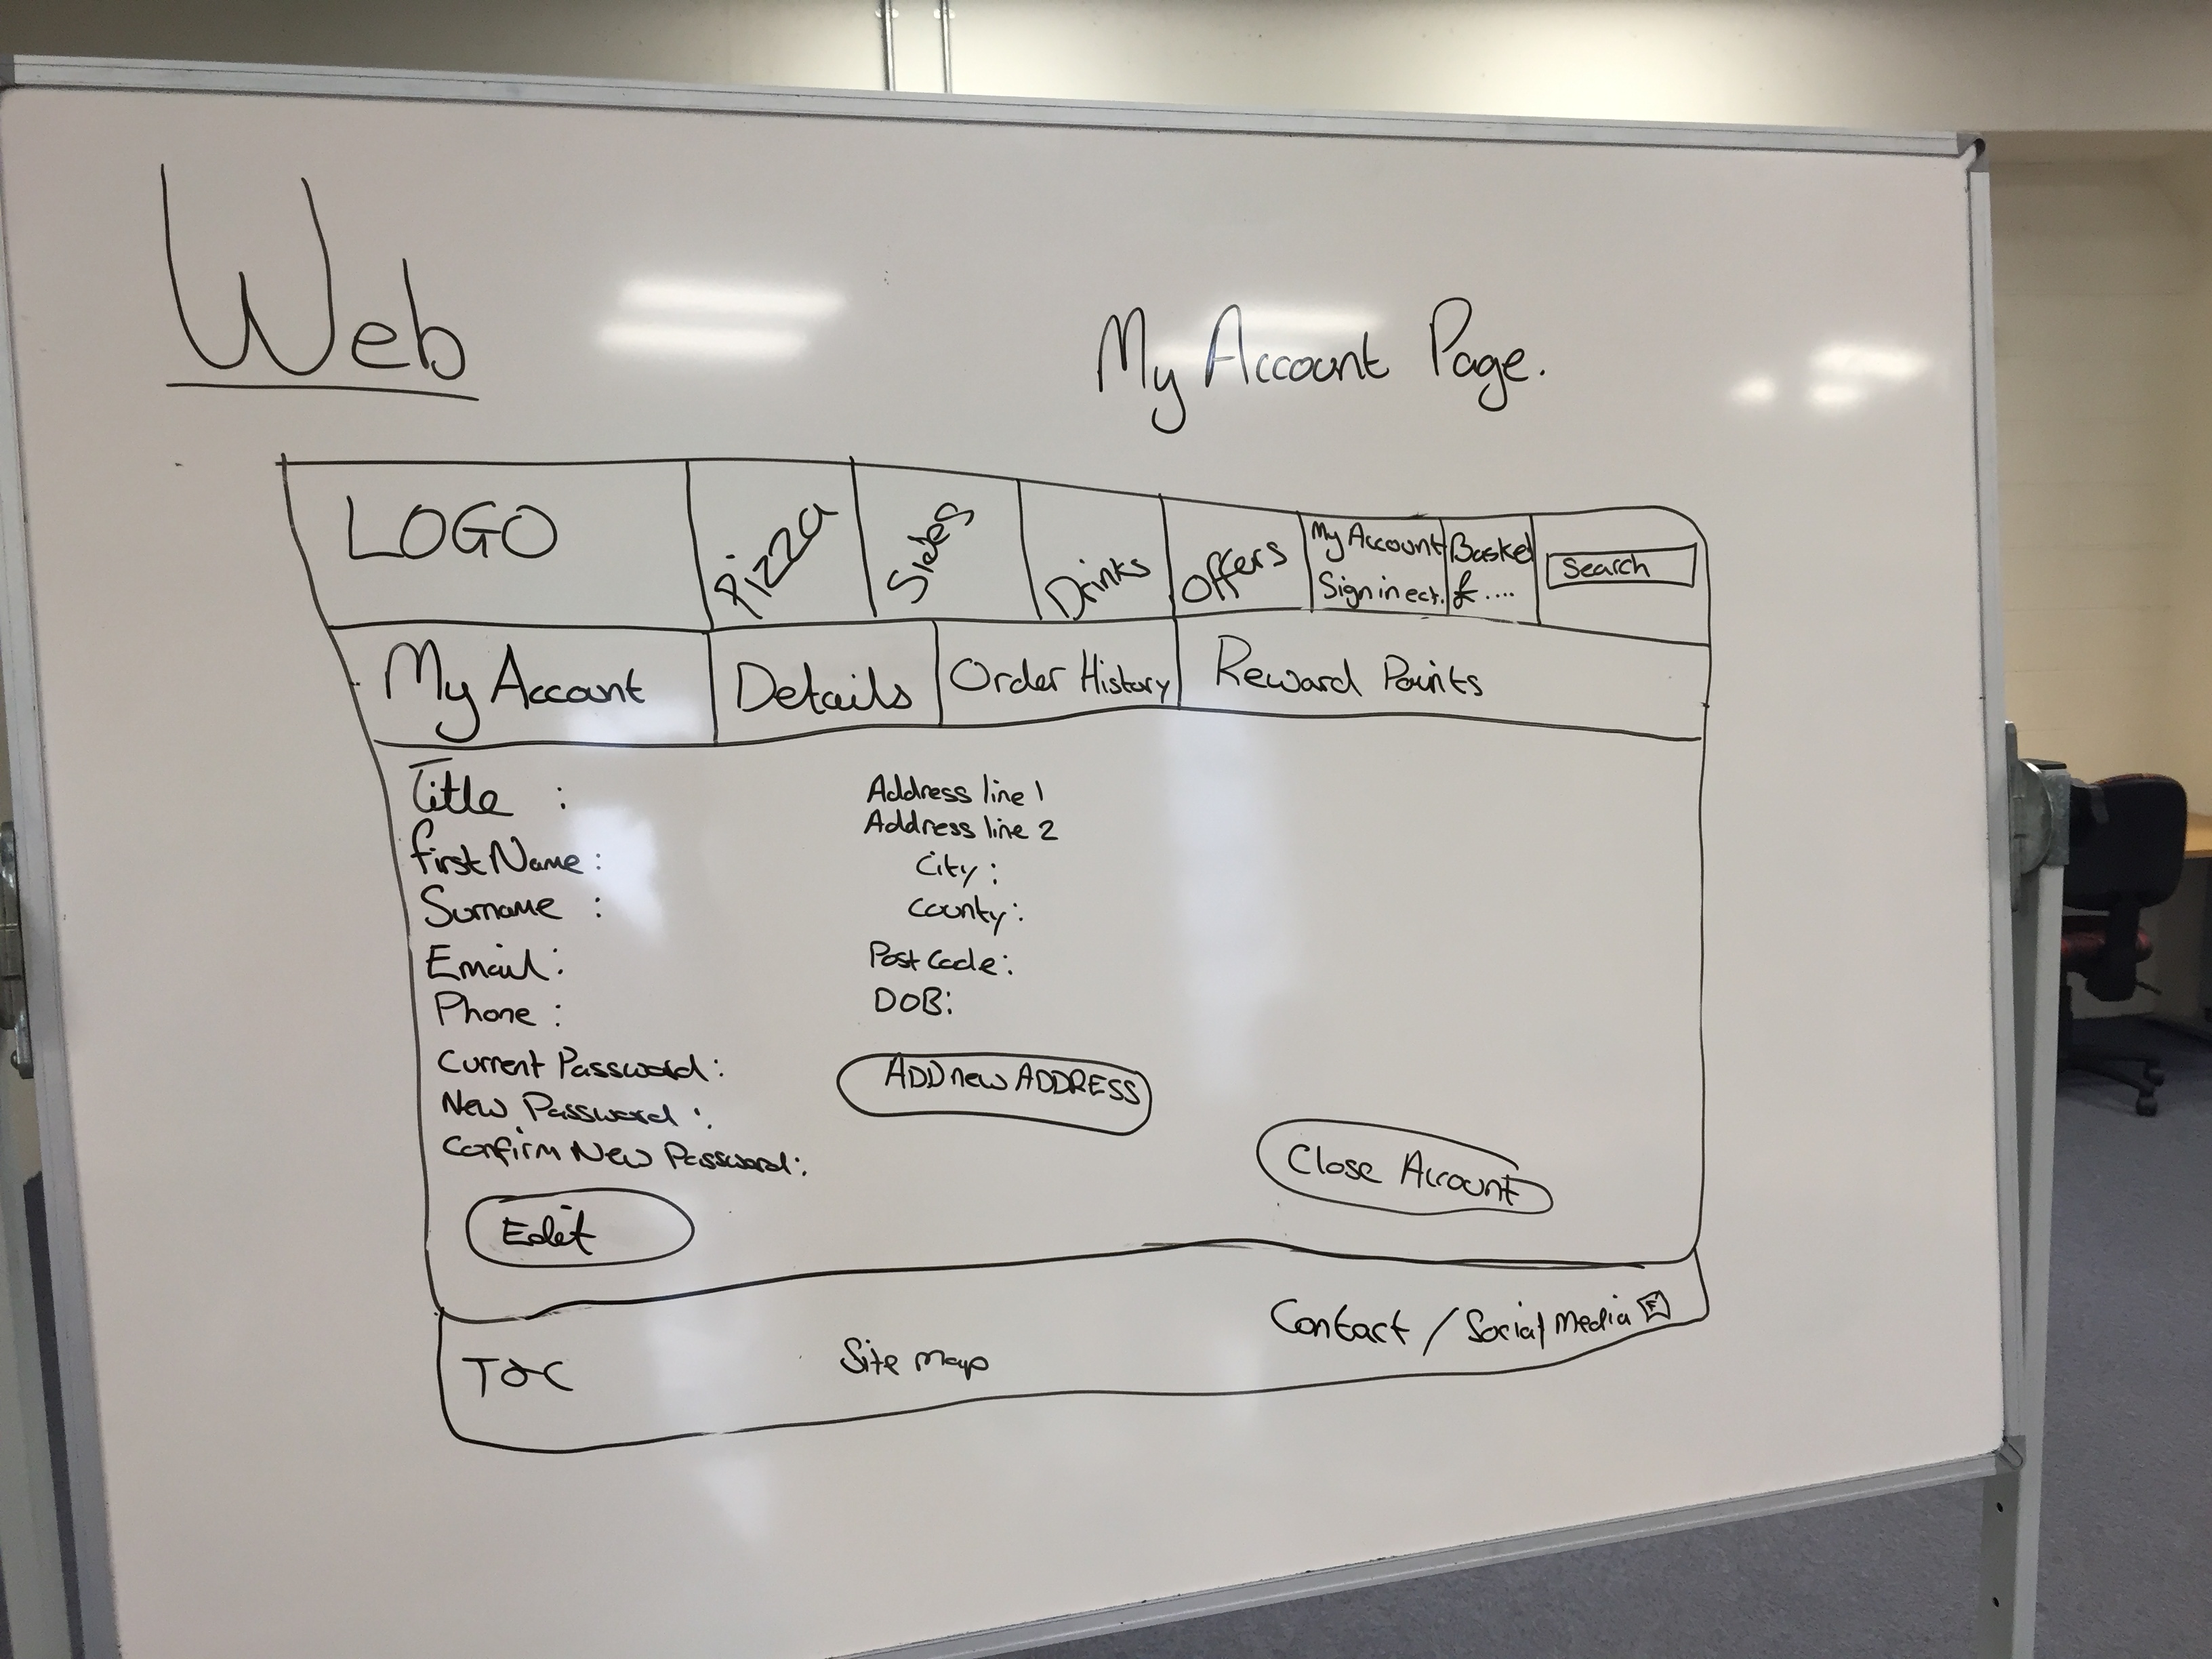 Web
My Account Page.
LOGO
Pizza
Sides
Drinks
Offers
My Account
Sign in ect.
Basket
£....
Search
My Account
Details
Order History
Reward Points
Title :
first Name :
Surname :
Email :
Phone :
Current Password :
New Password :
Confirm New Password :
Edit
Address line 1
Address line 2
City :
County :
Post Code :
DOB :
ADD new ADDRESS
Close Account
T&C
Site Map
Contact / Social Media F